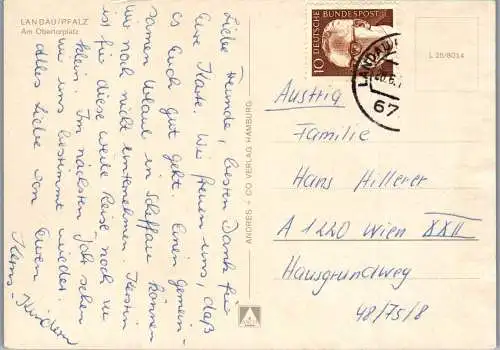 LANDAU/PFALZ
Am Obertorplatz
Liebe Freunde, besten Dank für
Eure Karte. Wir freuen uns, daß
es Euch gut geht. Einen gemein-
samen Urlaub in Schaffau können
wir noch nicht unternehmen. Kerstin
ist für diese weite Reise noch zu
klein. Im nächsten Jahr sehen
wir uns bestimmt wieder.
Alles Liebe von Euren
Kindern
ANDRES + CO VERLAG HAMBURG
DEUTSCHE BUNDESPOST
10
LANDAU
67
L 26/8014
Austria
Familie
Hans Hitterer
A 1220 Wien XXII
Hausgrundweg
48/75/8